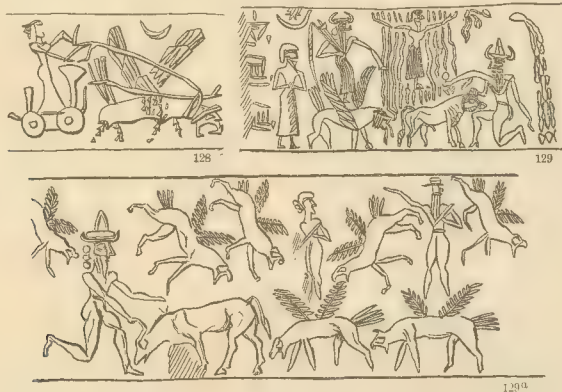 128
129
129a